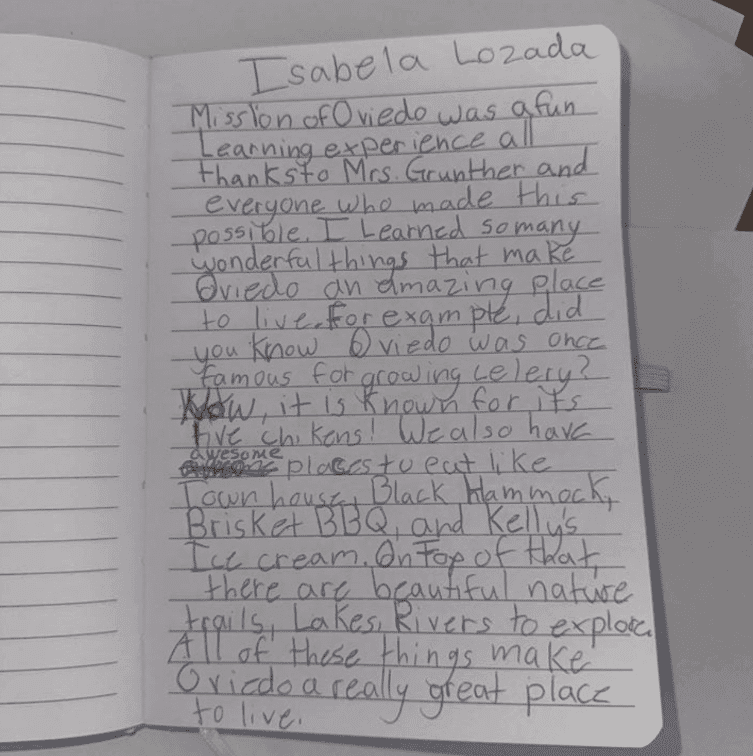 Isabela Lozada
Mission of Oviedo was a fun
Learning experience all
thanks to Mrs. Grunther and
everyone who made this
possible. I Learned so many
wonderful things that make
Oviedo an amazing place
to live. For example, did
you know Oviedo was once
famous for growing celery?
Now, it is known for its
live chikens! We also have
awesome
places to eat like
Town house, Black Hammock,
Brisket BBQ, and Kelly's
Ice cream. On Top of that,
there are beautiful nature
trails, Lakes, Rivers to explore.
All of these things make
Oviedo a really great place
to live.